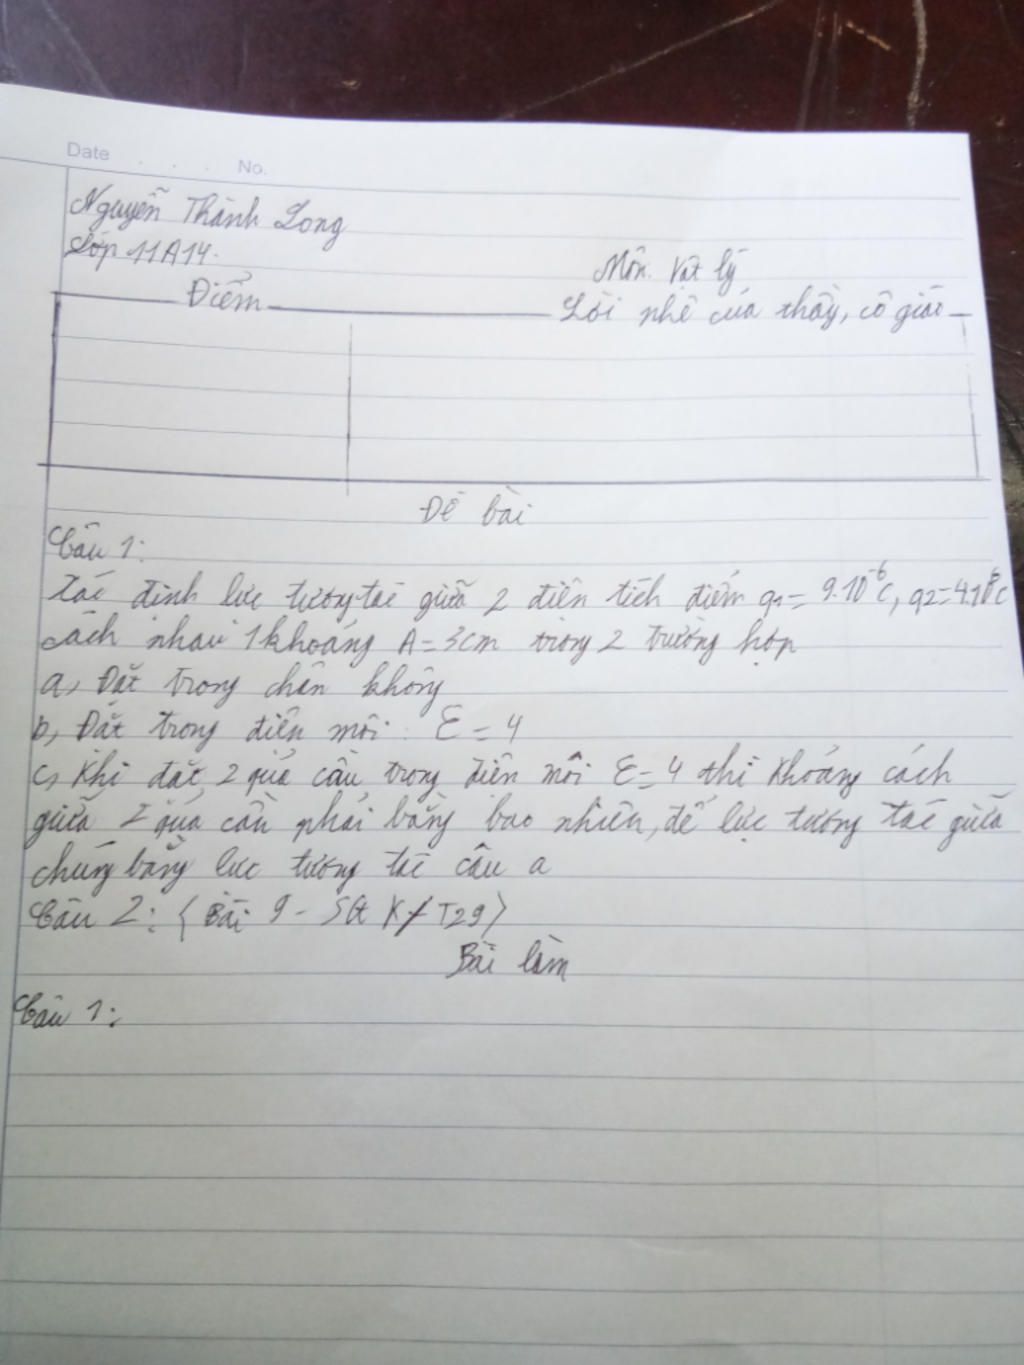 Date . . . No.
Nguyễn Thành Long
Lớp 11A14.
Môn. Vật lý
Điểm
Lời phê của thầy, cô giáo
Đề bài
Câu 1:
Xác định lực tương tác giữa 2 điện tích điểm q1 = 9.10⁻⁶C, q2=4.10⁻⁶C
cách nhau 1 khoảng A=3cm trong 2 trường hợp
a, Đặt trong chân không
b, Đặt trong điện môi: ε = 4
c, Khi đặt 2 quả cầu trong điện môi ε=4 thì khoảng cách
giữa 2 quả cầu phải bằng bao nhiên, để lực tương tác giữa
chúng bằng lực tương tác câu a
Câu 2: (Bài 9 - SGK/T29)
Bài làm
Câu 1: